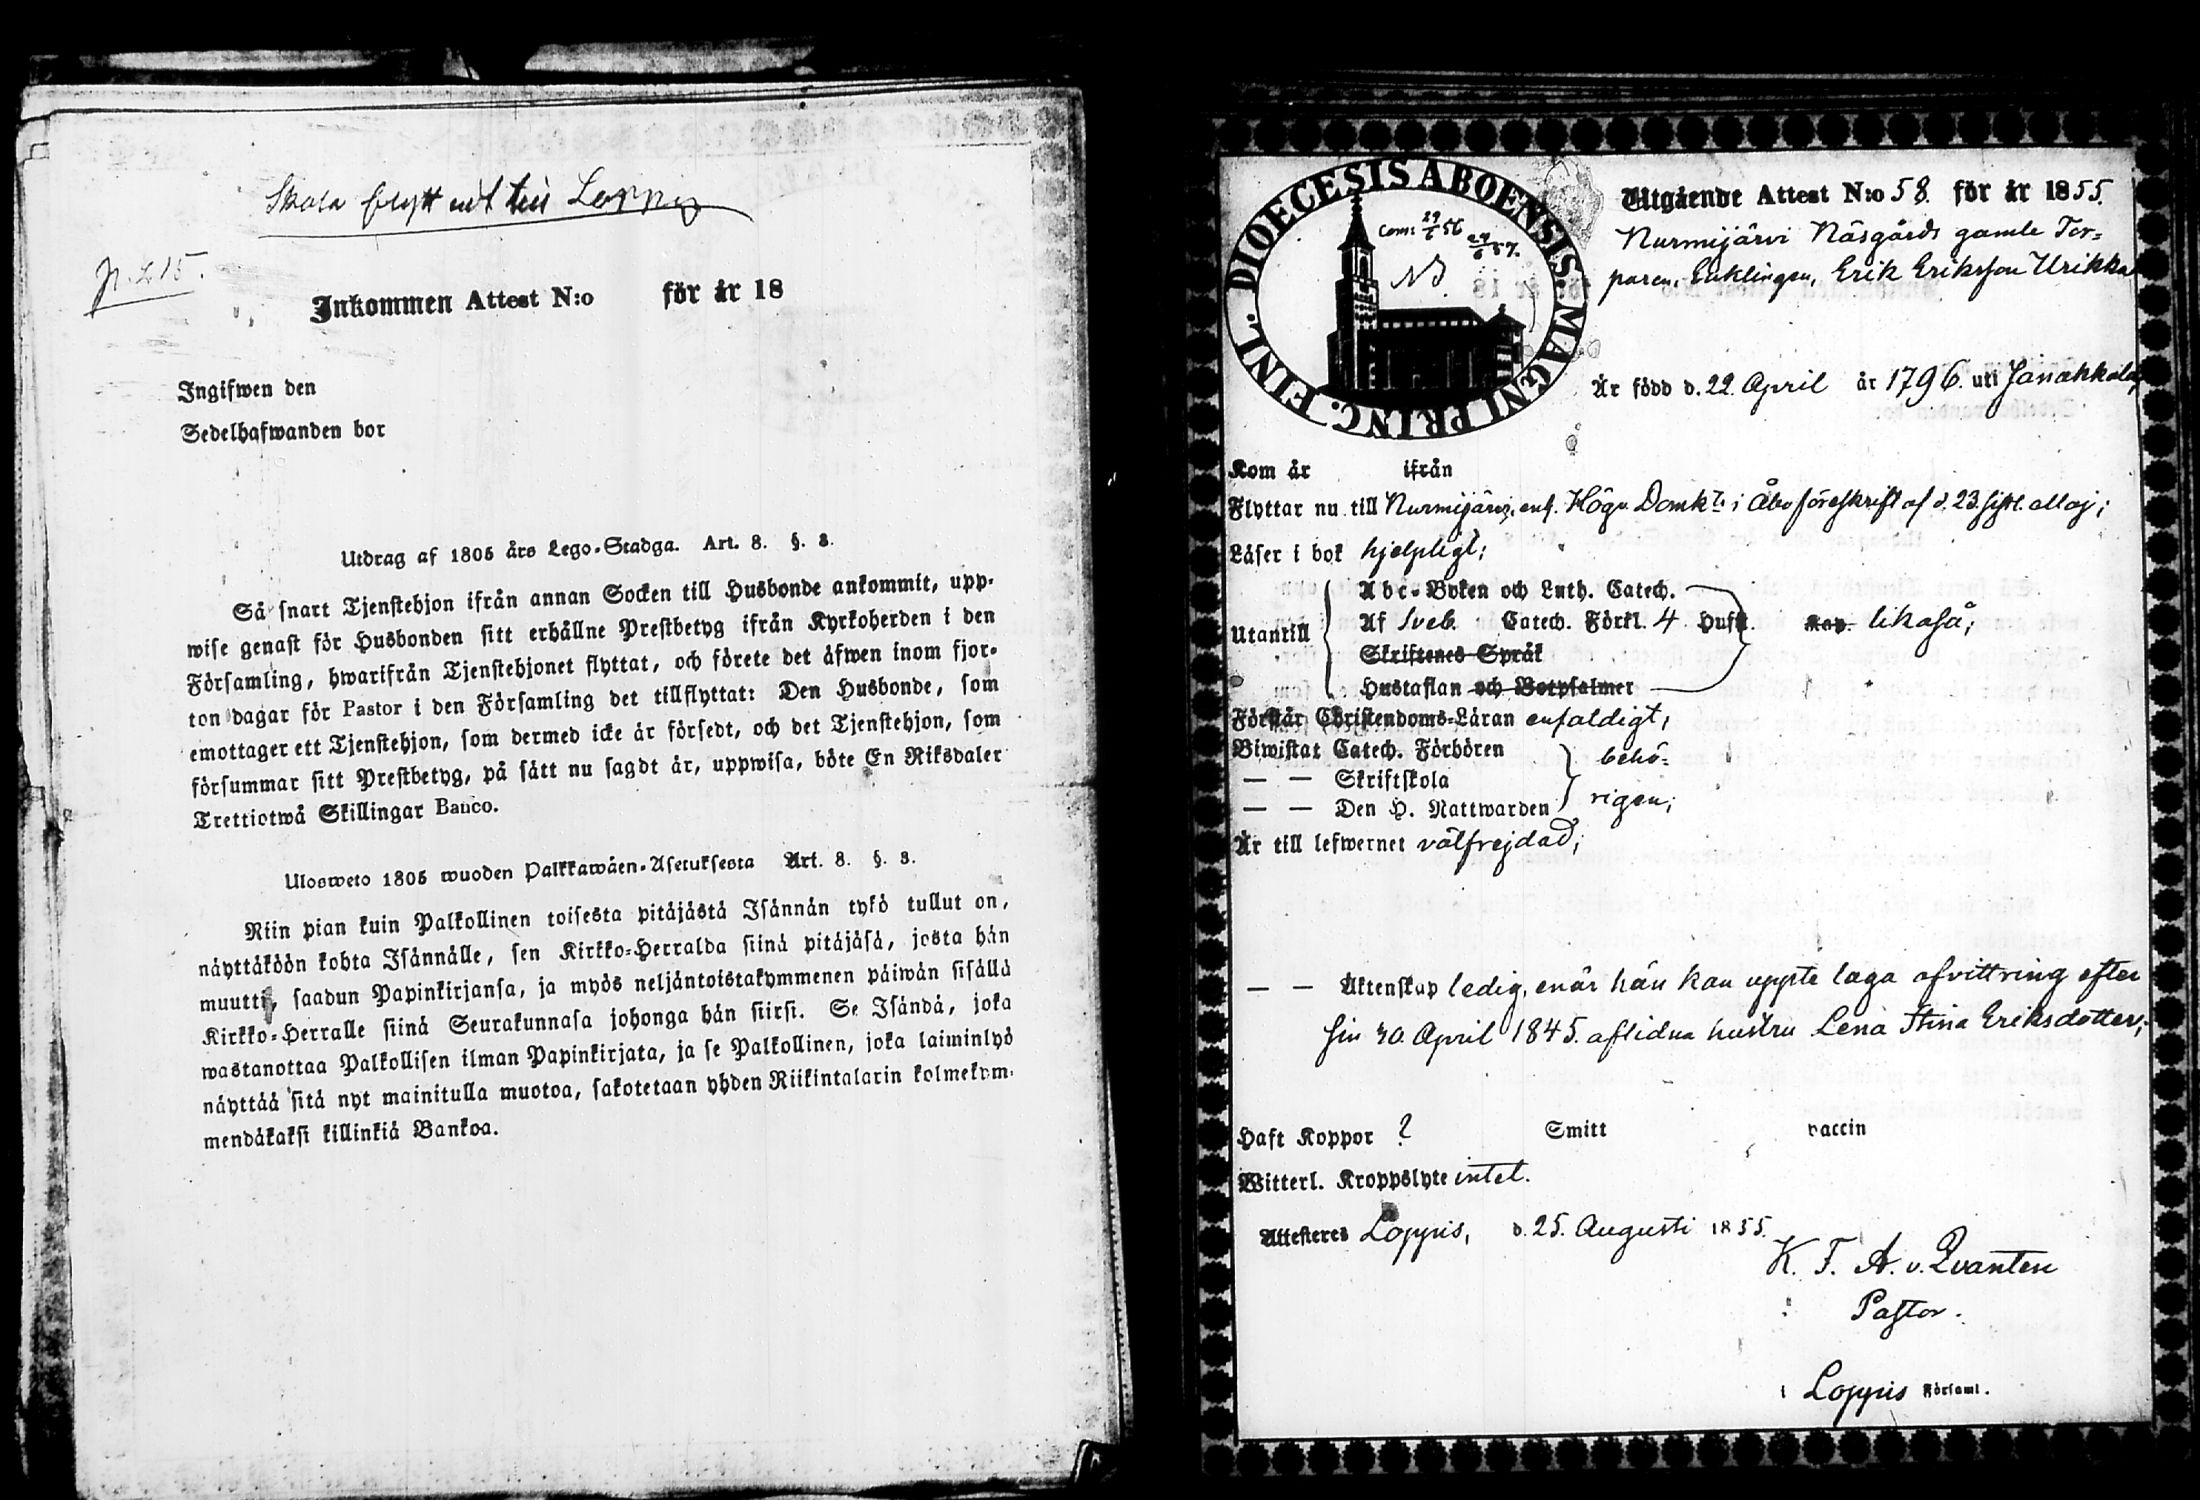 Skola flytt ut till Loppis
p. 215.
Inkommen Attest N:o för år 18
Ingifwen den
Sedelhafwanden bor
Utdrag af 1805 års Lego-Stadga. Art. 8. §. 3.
Så snart Tjenstehjon ifrån annan Socken till Husbonde ankommit, upp-
wise genast för Husbonden sitt erhållne Prestbetyg ifrån Kyrkoherden i den
Församling, hwarifrån Tjenstehjonet flyttat, och förete det äfwen inom fjor-
ton dagar för Pastor i den Församling det tillflyttat: Den Husbonde, som
emottager ett Tjenstehjon, som dermed icke är försedt, och det Tjenstehjon, som
försummar sitt Prestbetyg, på sätt nu sagdt är, uppwisa, böte En Riksdaler
Trettiotwå Skillingar Banco.
Ulosweto 1805 wuoden Palkkawäen-Asetuksesta Art. 8. §. 3.
Niin pian kuin Palkollinen toisesta pitäjästä Isännän tykö tullut on,
näyttäköön kohta Isännälle, sen Kirkko-Herralda siinä pitäjäsä, josta hän
muutti, saadun Papinkirjansa, ja myös neljäntoistakymmenen päiwän sisällä
Kirkko-Herralle siinä Seurakunnasa johonga hän siirsi. Se Isändä, joka
wastanottaa Palkollisen ilman Papinkirjata, ja se Palkollinen, joka laiminlyö
näyttää sitä nyt mainitulla muotoa, sakotetaan yhden Riikintalarin kolmekym-
mendäkaksi killinkiä Bankoa.
DIOECESIS ABOENSIS MAGNI PRINC. FINL.
Com: 29/6 56
24/6 57.
NB
Utgående Attest N:o 58. för år 1855.
Nurmijärvi Näsgårds gamle Tor-
paren, Enklingen, Erik Eriksson Urikka
Är född d. 22 April år 1796. uti Janakkala,
Kom år ifrån
Flyttar nu till Nurmijärvi, enl. Högv. Domk:ts i Åbo föreskrift af d. 23 sistl. Maj;
Läser i bok hjelpligt;
Utantill
Abc-Boken och Luth. Catech.
Af Sveb. Catech. Förkl. 4 Hufst. Kap. likaså;
Skriftenes Språk
Hustaflan och Botpsalmer
Förstår Christendoms-Läran enfaldigt,
Biwistat Catech. Förhören behö-
— — Skriftskola
— — Den H. Nattwarden rigen;
Är till lefwernet välfrejdad;
— — Äktenskap ledig, enär hän kan uppte laga afvittring efter
sin 30. April 1845. aflidna hustru Lena Stina Eriksdotter;
Haft Koppor ? Smitt vaccin
Witterl. Kroppslyte intet.
Attesteres Loppis, d. 25. Augusti 1855.
K. F. A. v. Qvanten
Pastor.
i Loppis Församl.